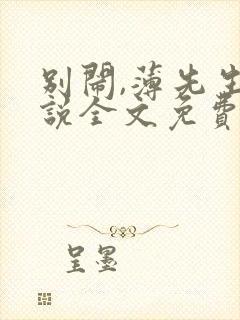 别闹,薄先生
説全文免費
呈墨